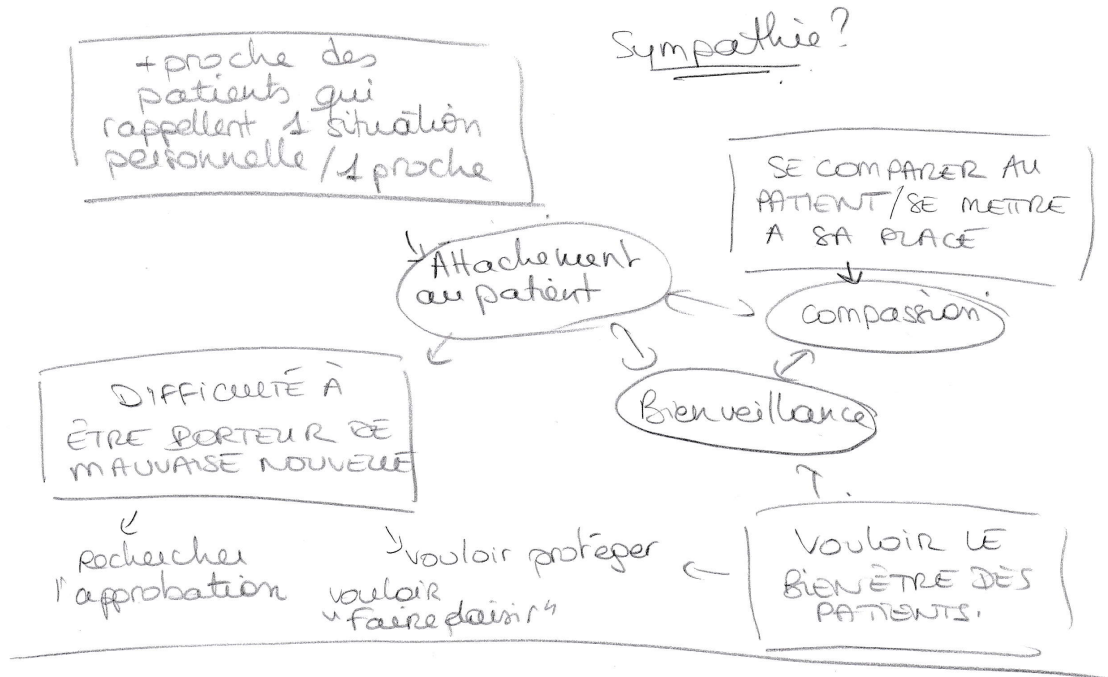 Sympathie?
+ proche des
patients qui
rappellent 1 situation
personnelle / 1 proche
SE COMPARER AU
PATIENT / SE METTRE
A SA PLACE
Attachement
au patient
compassion
Bienveillance
DIFFICULTÉ À
ÊTRE PORTEUR DE
MAUVAISE NOUVELLE
Rechercher
l'approbation
vouloir protéger
vouloir
"faire plaisir"
VOULOIR LE
BIEN ÊTRE DES
PATIENTS.